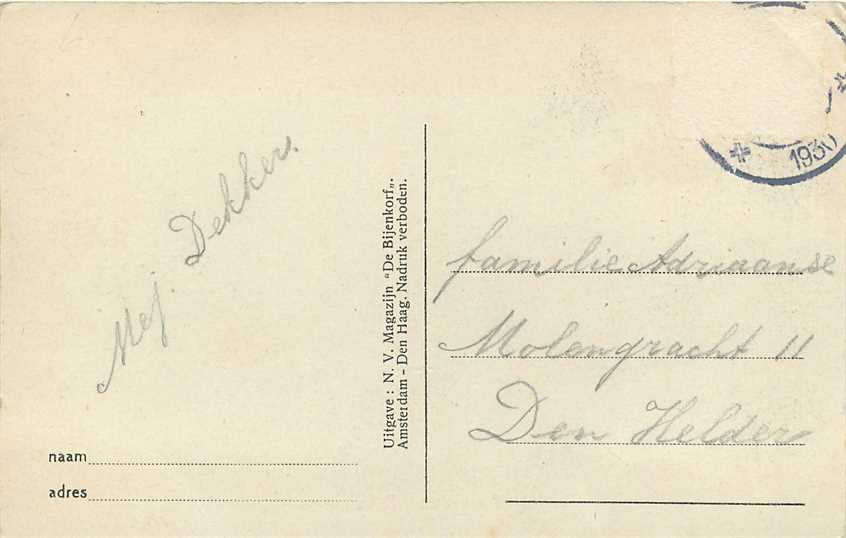 1930
Mej. Dekker.
Uitgave: N. V. Magazijn "De Bijenkorf„.
Amsterdam - Den Haag. Nadruk verboden.
familie Adriaanse
Molengracht 11
Den Helder
naam
adres